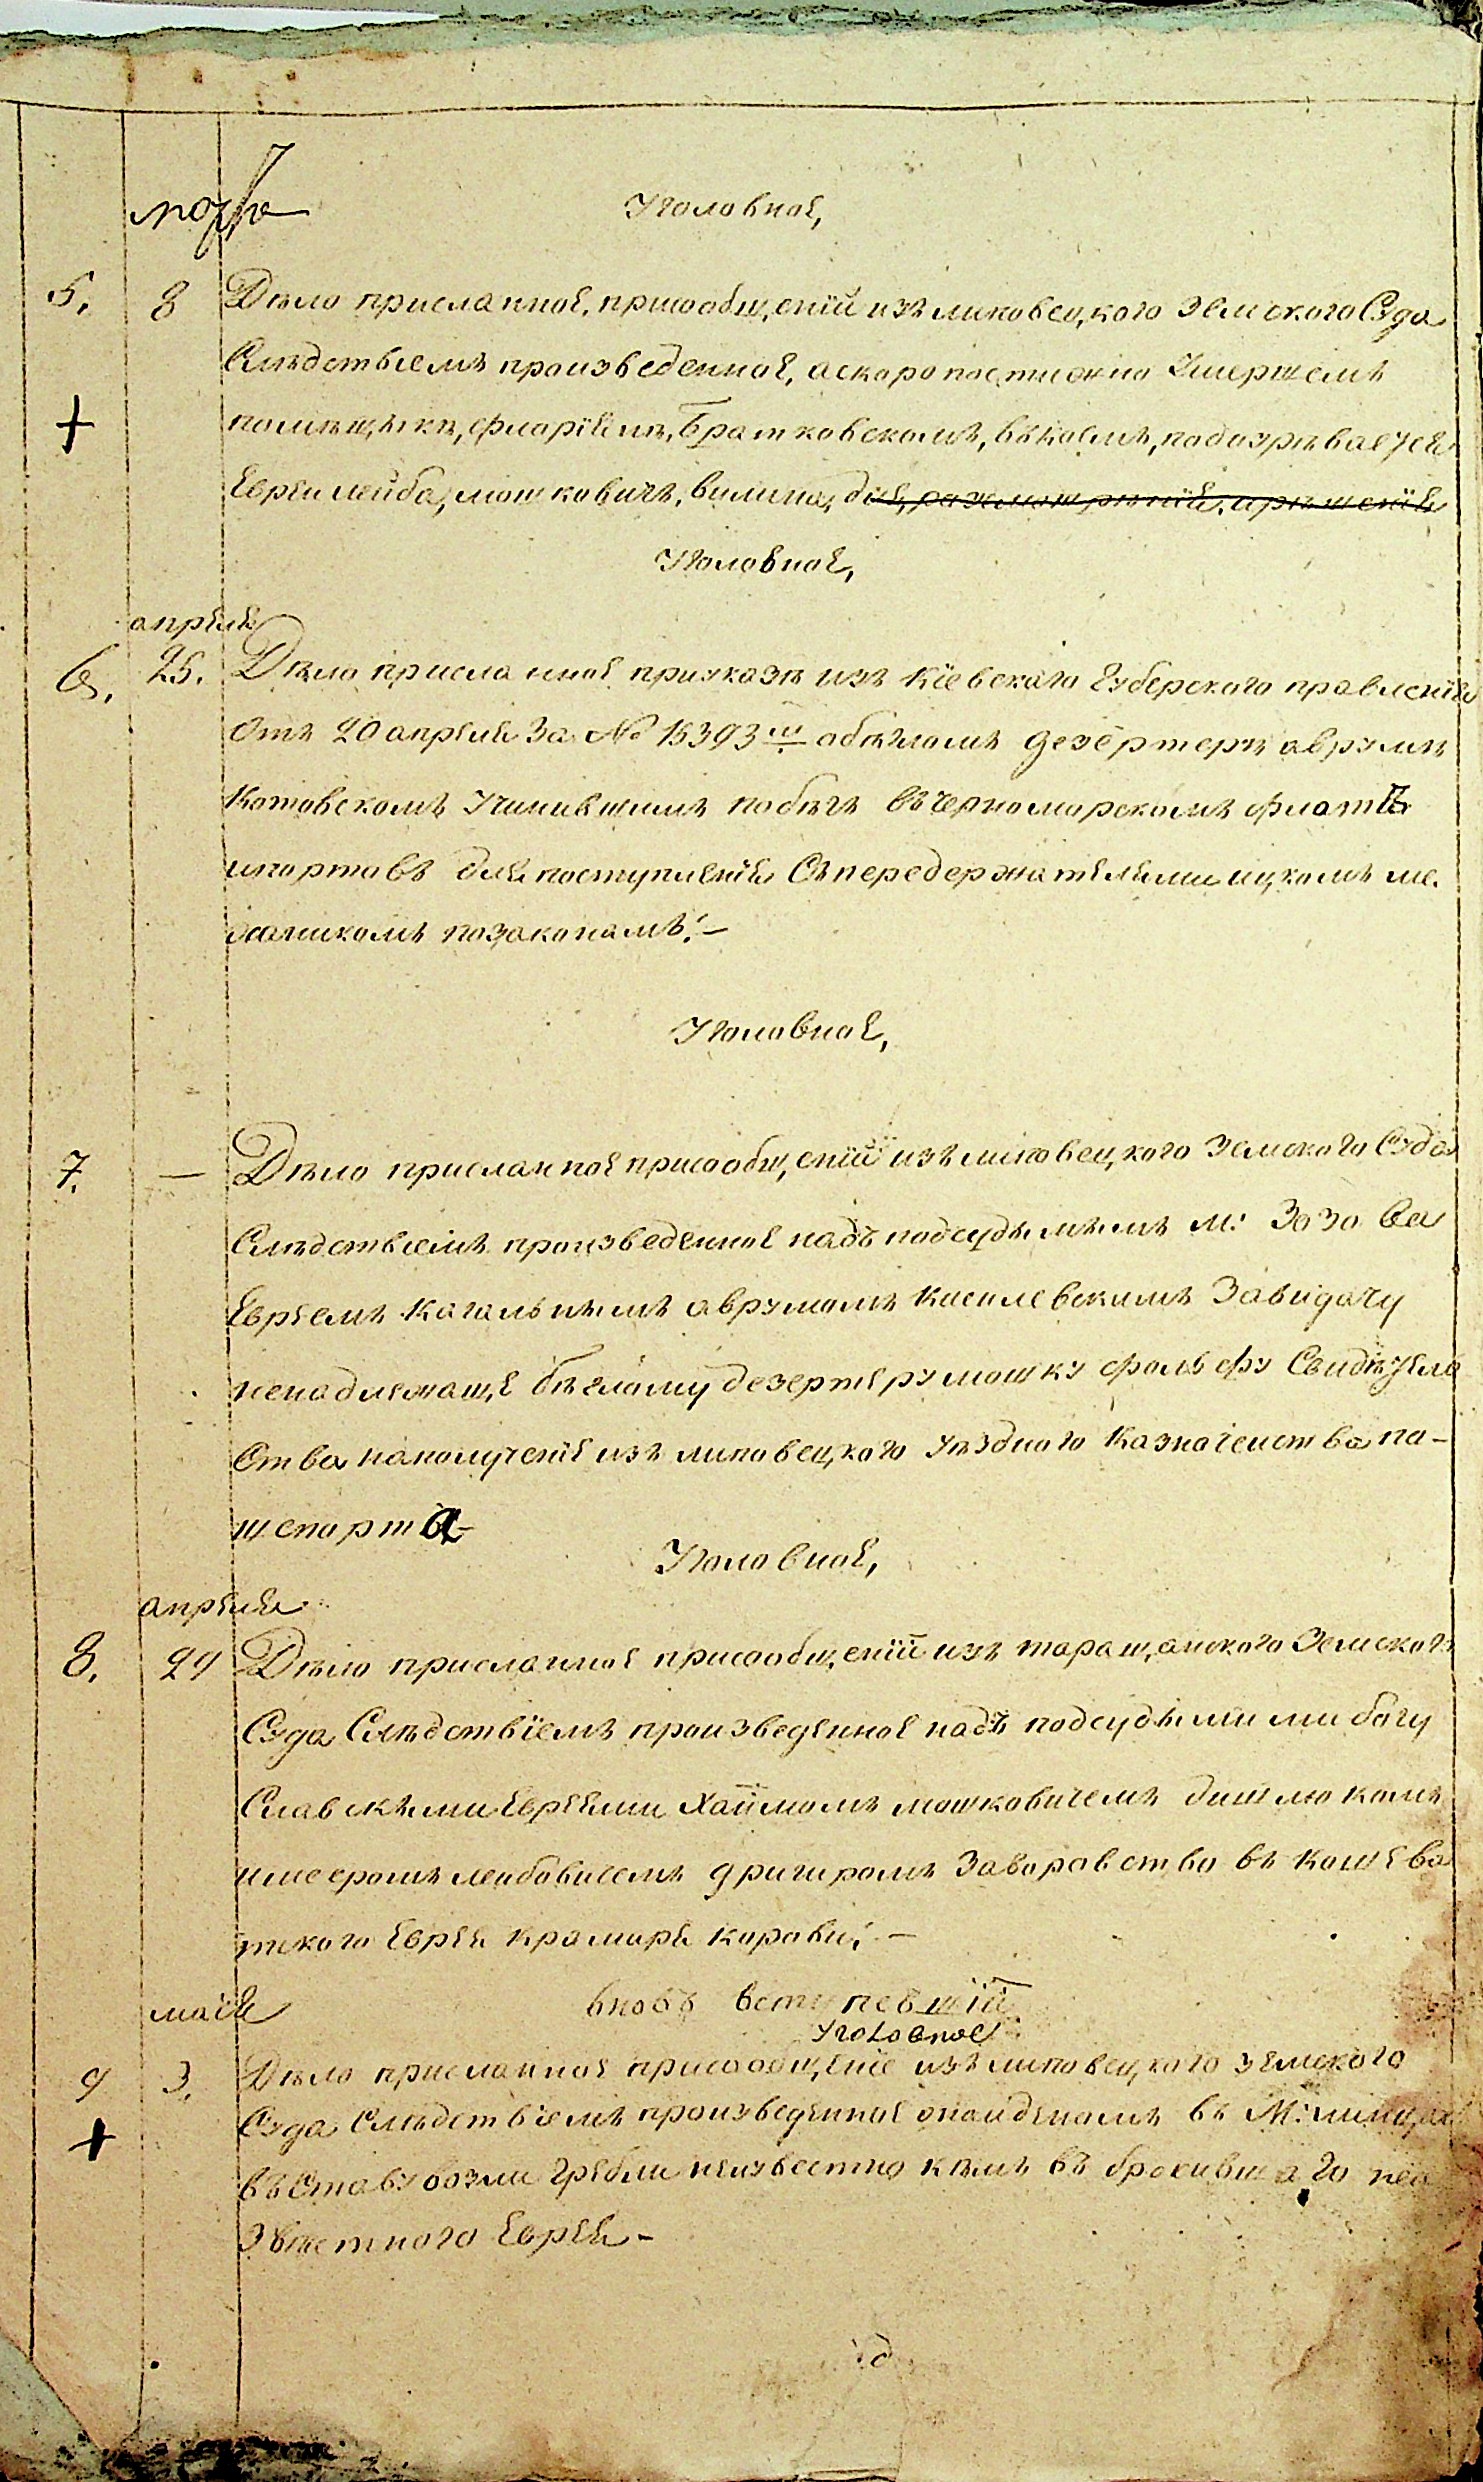 марта
Уголовное,
5. 8 Дѣло присланное, присообщенiи изъ липовецкого Земского Суда
Слѣдствiемъ произведенное, аскоропостижно Умершемъ
помѣщыкѣ, флорiянѣ, Братковскомъ, въкоемъ, подозрѣвается
+
Еврей лейба, мошковичъ, вилина, для, разсмотрѣнiя, ирѣшенiя
Уголовное,
апреля
6. 25. Дѣло присланное приуказѣ изъ Кiевскаго Губерского правленiя
Отъ 20 апреля За № 15393 мъ обѣгломъ дезертерѣ аврумѣ
Котовскомъ Учинившимъ побѣгъ въчерноморскомъ флотѣ
ипортовъ для поступленiя Съпередержателями ицкомъ ме.
жанникомъ позаконамъ: —
Уголовное,
7. — Дѣло присланное присообщенiи изъ липовецкого Земского Суда
Слѣдствiемъ произведенное надъ подсудымымъ м: Зозова
Евреемъ Кагальнымъ аврумомъ Киселевскимъ Завидачу
ненадлежаще бѣглому дезертеру мошку фольфу Свидѣтель
Ства наполученiе изъ липовецкого уѣздного Казначейства па-
шепорта-
Уголовное,
апреля
8. 29 Дѣло присланное присообщенiи изъ таращанского Земского
Суда Слѣдствiемъ произведенное надъ подсудымыми богу
Славскыми Евреями Хаймомъ мошковичемъ дишлюкомъ
имееромъ лейбовичемъ дригиромъ Заворовство въ Кошева
тского Еврея крамаря коровы: —
маiя вновъ вступевшiи
уголовное
9 3. Дѣло присланное присообщенiе изъ липовецкого земского
Суда Слѣдствiемъ произведенное онайденомъ въ М:
+
въставу возли Гребли неизвестно кѣмъ въ брокившаго неи
звестного Еврея —